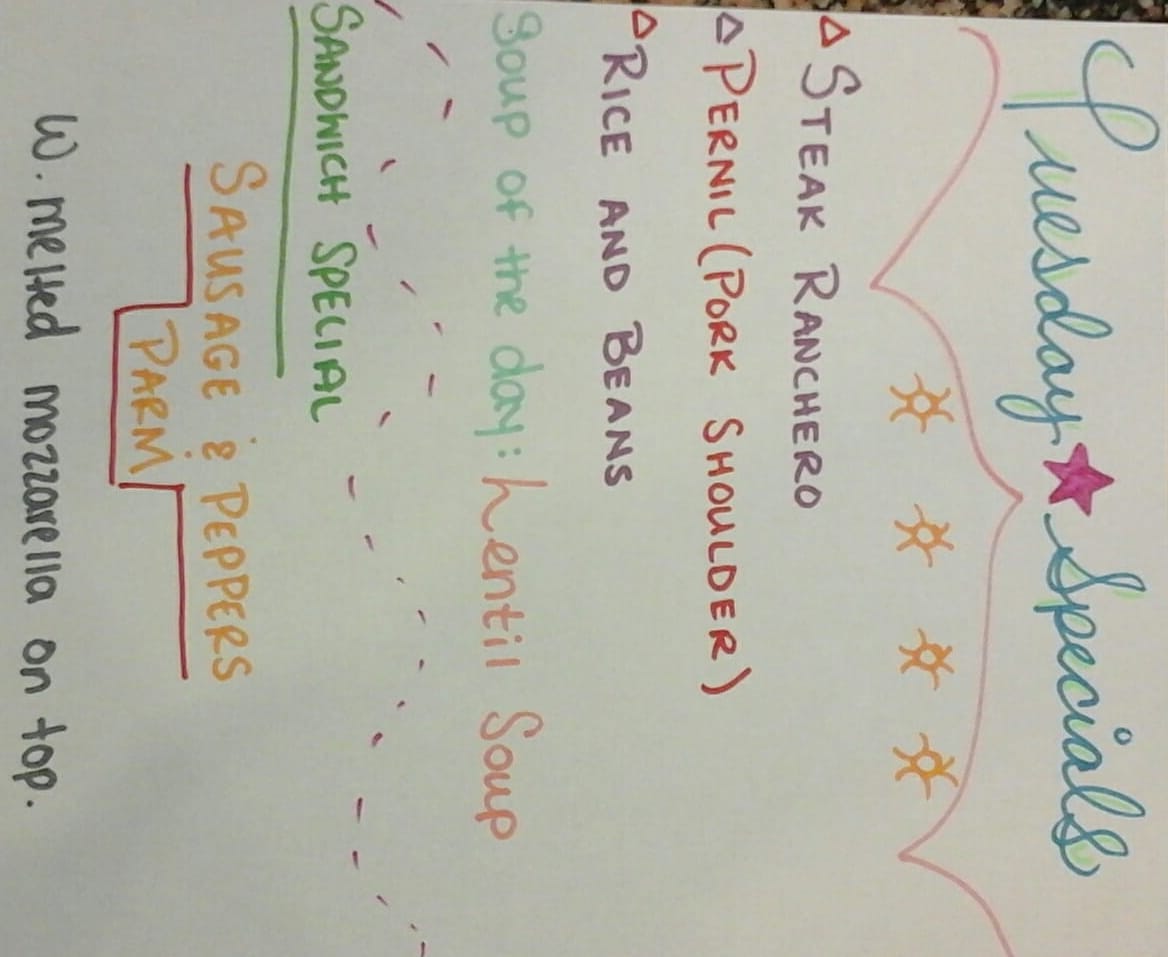 Tuesday Specials
STEAK RANCHERO
PERNIL (PORK SHOULDER)
RICE AND BEANS
Soup of the day: Lentil Soup
SANDWICH SPECIAL
SAUSAGE & PEPPERS
PARM
W. melted mozzarella on top.